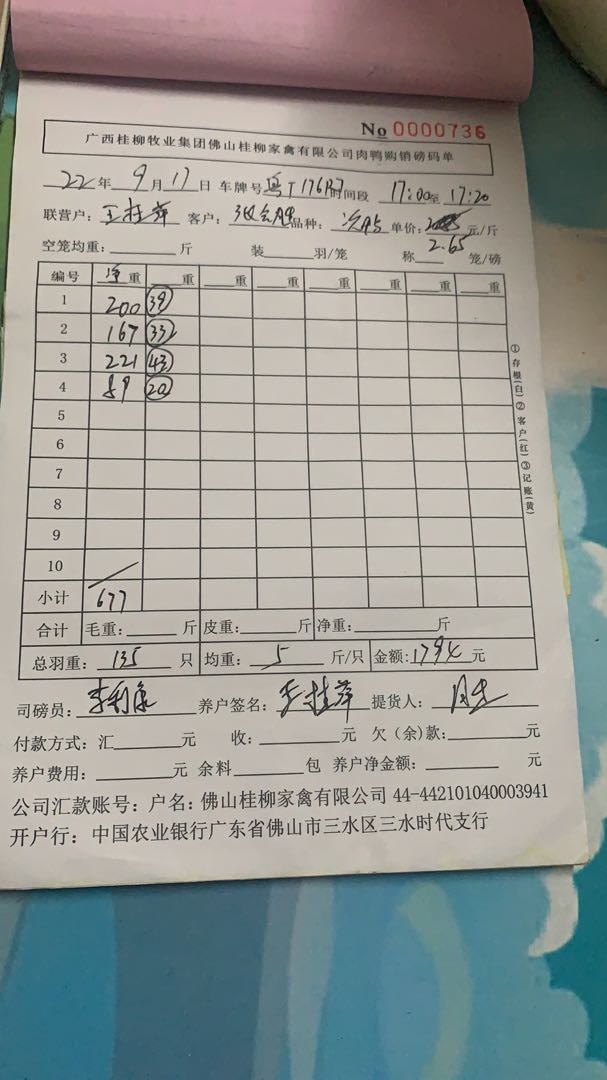 No 0000736
广西桂柳牧业集团佛山桂柳家禽有限公司肉鸭购销磅码单
22年 9月17日 车牌号 粤T176R7 时间段 17:00至 17:20
联营户: 王桂萍 客户: 品种: 次鸭 单价: 元/斤
2.65
空笼均重: 斤 装 羽/笼 称 笼/磅
编号 净重 重 重 重 重 重 重 重
1 200 39
2 167 33
3 221 43
4 89 20
5
6
7
8
9
10
小计 677
合计 毛重: 斤 皮重: 斤 净重: 斤
总羽重: 135 只 均重: 5 斤/只 金额: 1794 元
司磅员: 李利康 养户签名: 李桂萍 提货人:
付款方式: 汇 元 收: 元 欠(余)款: 元
养户费用: 元 余料 包 养户净金额: 元
公司汇款账号: 户名: 佛山桂柳家禽有限公司 44-442101040003941
开户行: 中国农业银行广东省佛山市三水区三水时代支行
①存根(白)②客户(红)③记账(黄)